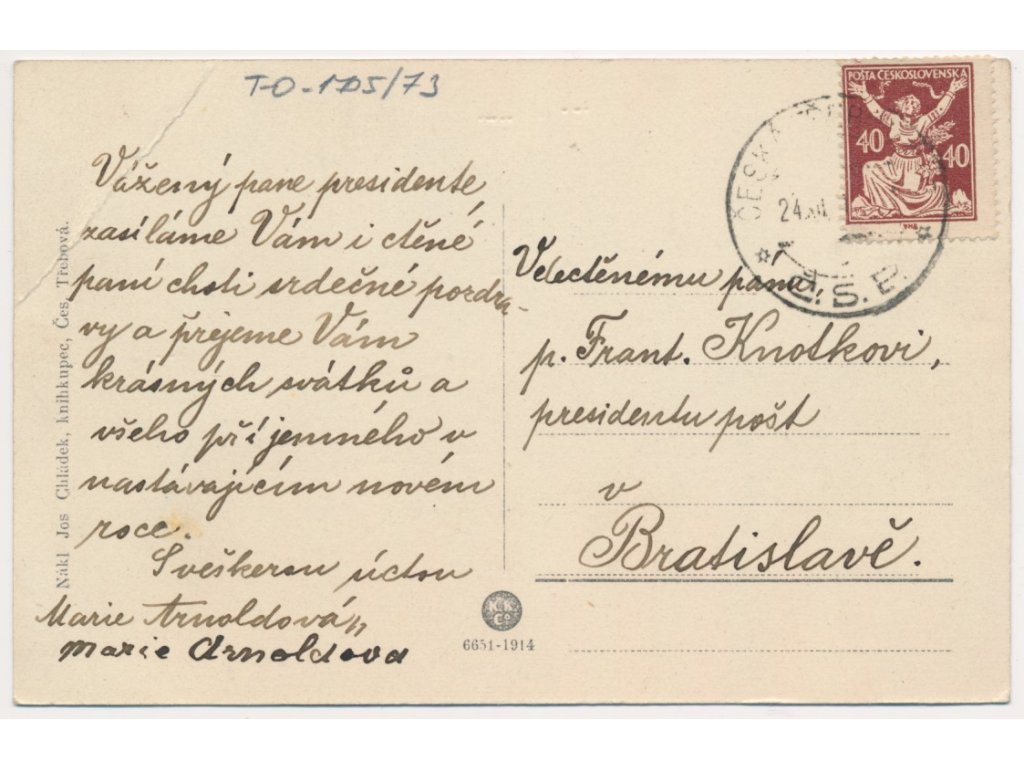 T-O-1D5/73
Vážený pane presidente,
zasíláme Vám i ctěné
paní choti srdečné pozdra-
vy a přejeme Vám
krásných svátků a
všeho příjemného v
nastávajícím novém
roce.
S veškerou úctou
Marie Arnoldová
Marie Arnoldova
Nákl Jos Chládek, knihkupec, Čes. Třebová.
K.K.
Co
6651-1914
POŠTA ČESKOSLOVENSKÁ
40 40
ČESKÁ
24.XII
Č.S.P.
Velectěnému panu,
p. Frant. Knotkovi,
presidentu pošt
v
Bratislavě.